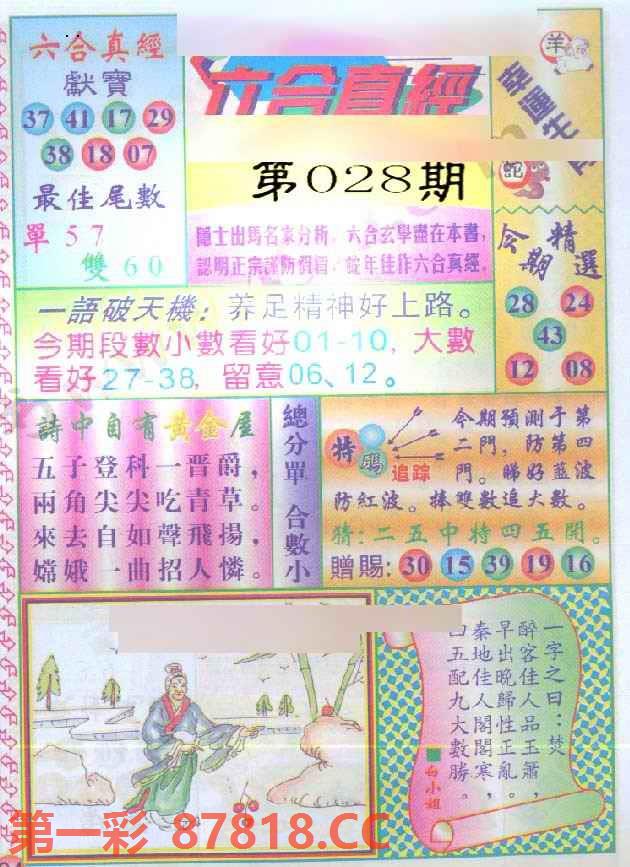 六合真經
獻寶
37 41 17 29
38 18 07
最佳尾數
單 5 7
雙 6 0
六合真經
第028期
隱士出馬名家分析，六合玄學盡在本書，
認明正宗謹防假冒，蛇年佳作六合真經。
羊
幸運生肖
蛇
今期精選
28 24
43
12 08
一語破天機：养足精神好上路。
今期段數小數看好01-10，大數
看好27-38，留意06、12。
詩中自有黃金屋
五子登科一晋爵，
兩角尖尖吃青草。
來去自如聲飛揚，
嫦娥一曲招人憐。
總分單 合數小
特碼
追踪
今期預測于第
二門，防第四
門。睇好藍波
防紅波。捧雙數追大數。
猜：二五中特四五開。
贈賜：30 15 39 19 16
一字之曰：焚
醉客佳人品玉簫，
早出晚歸性正亂。
秦地佳人閣閣寒，
四五配九大數勝。
白小姐
第一彩 87818.CC